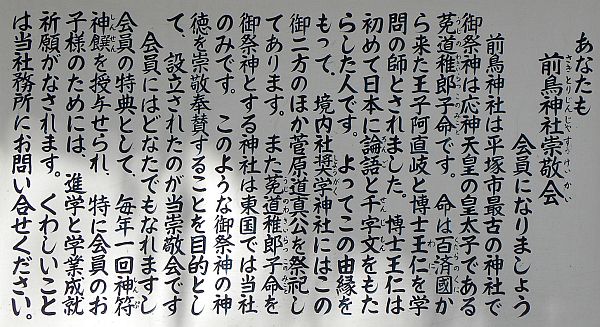 あなたも
前鳥神社崇敬会
会員になりましょう
前鳥神社は平塚市最古の神社で
御祭神は応神天皇の皇太子である
菟道稚郎子命です。命は百済國か
ら来た王子阿直岐と博士王仁を学
問の師とされました。博士王仁は
初めて日本に論語と千字文をもた
らした人です。よってこの由縁を
もって、境内社奨学神社にはこの
御二方のほか菅原道真公を祭祀し
てあります。また菟道稚郎子命を
御祭神とする神社は東国では当社
のみです。このような御祭神の神
徳を崇敬奉賛することを目的とし
て、設立されたのが当崇敬会です
会員にはどなたでもなれますし
会員の特典として、毎年一回神符
神饌を授与せられ、特に会員のお
子様のためには、進学と学業成就
祈願がなされます。くわしいこと
は当社務所にお問い合せください。